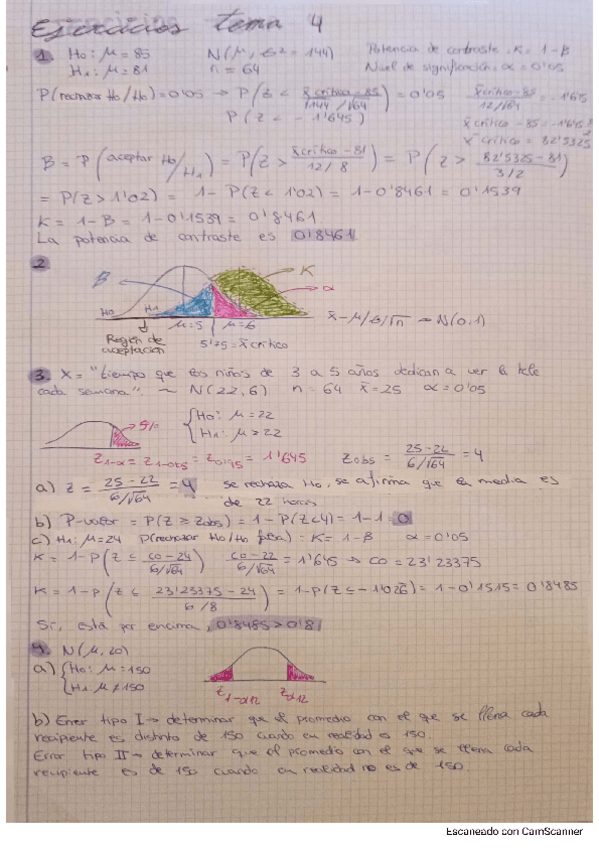 Ejercicios tema 4
1. H0: μ = 85 N(μ, σ² = 144) Potencia de contraste, K = 1 - B
H1: μ = 81 n = 64 Nivel de significación, α = 0'05
P(rechazar H0/H0) = 0'05 → P(z < x̄ crítico - 85 / √144/√64) = 0'05 x̄ crítico - 85 / 12/√64 = -1'65
P(z < -1'645) x̄ crítico - 85 = -1'645·
x̄ crítico = 82'5325
B = P(aceptar H0/H1) = P(z > x̄ crítico - 81 / 12/8) = P(z > 82'5325 - 81 / 3/2)
= P(z > 1'02) = 1 - P(z < 1'02) = 1 - 0'8461 = 0'1539
K = 1 - B = 1 - 0'1539 = 0'8461
La potencia de contraste es 0'8461
2
B K α
H0 H1 μ=5 μ=6 x̄ - μ/σ/√n ~ N(0,1)
Región de aceptación 5'25 = x̄ crítico
3. X = "tiempo que los niños de 3 a 5 años dedican a ver la tele
cada semana" ~ N(22,6) n = 64 x̄ = 25 α = 0'05
5% H0: μ = 22
H1: μ ≥ 22
z1-α = z1-0'05 = z0'95 = 1'645 zobs = 25 - 22 / 6/√64 = 4
a) z = 25 - 22 / 6/√64 = 4 se rechaza H0, se afirma que la media es
de 22 horas
b) P-valor = P(z ≥ zobs) = 1 - P(z<4) = 1 - 1 = 0
c) H1: μ = 24 P(rechazar H0/H0 falsa) = K = 1 - B α = 0'05
K = 1 - P(z ≤ c0 - 24 / 6/√64) c0 - 22 / 6/√64 = 1'645 → c0 = 23'23375
K = 1 - P(z ≤ 23'23375 - 24 / 6/8) = 1 - P(z ≤ -1'026) = 1 - 0'1515 = 0'8485
Si, está por encima, 0'8485 > 0'8
4. N(μ, 20)
a) H0: μ = 150
H1: μ ≠ 150 z1-α/2 zα/2
b) Error tipo I → determinar que el promedio con el que se llena cada
recipiente es distinto de 150 cuando en realidad es 150.
Error tipo II → determinar que el promedio con el que se llena cada
recipiente es de 150 cuando en realidad no es de 150.
Escaneado con CamScanner